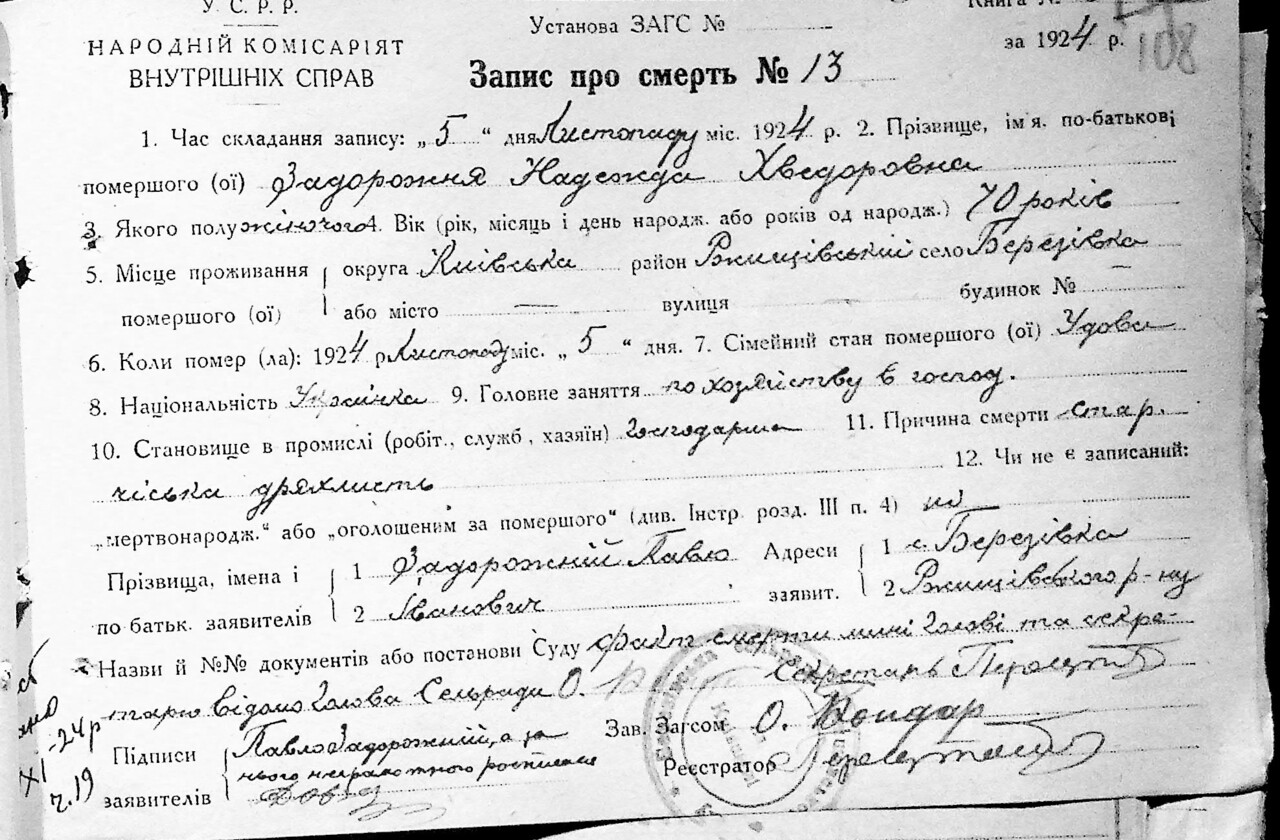 У.С.Р.Р.
НАРОДНІЙ КОМІСАРІЯТ
ВНУТРІШНІХ СПРАВ
Установа ЗАГС №
Книга №
за 1924 р.
108
Запис про смерть № 13
1. Час складання запису: „5“ дня Листопаду міс. 1924 р. 2. Прізвище, ім'я. по-батькові
помершого (ої) Задорожня Надежда Хведоровна
3. Якого полу жіночого 4. Вік (рік, місяць і день народж. або років од народж.) 70 років
5. Місце проживання округа Київська район Ржищівський село Березівка
помершого (ої) або місто — вулиця будинок № —
6. Коли помер (ла): 1924 р Листопаду міс. „5“ дня. 7. Сімейний стан помершого (ої) Удова
8. Національність Українка 9. Головне заняття по хозяйству в господ.
10. Становище в промислі (робіт., служб, хазяїн) Господарша 11. Причина смерти стар.
чіська дряхлисть 12. Чи не є записаний:
„мертвонародж.“ або „оголошеним за помершого“ (див. Інстр. розд. III п. 4) ні
Прізвища, імена і 1 Задорожній Павло Адреси 1 с. Березівка
по батьк. заявителів 2 Іванович заявит. 2 Ржищівського р-ну
Назви й №№ документів або постанови Суду факт смерти мині Голові та секре-
тарю відомо Голова Сельради О. Секретарь
Підписи Павло Задорожній, а за Зав. Загсом О. Бондар
нього неграмотного росписався Реєстратор
заявителів
XI-24 р
ч. 19